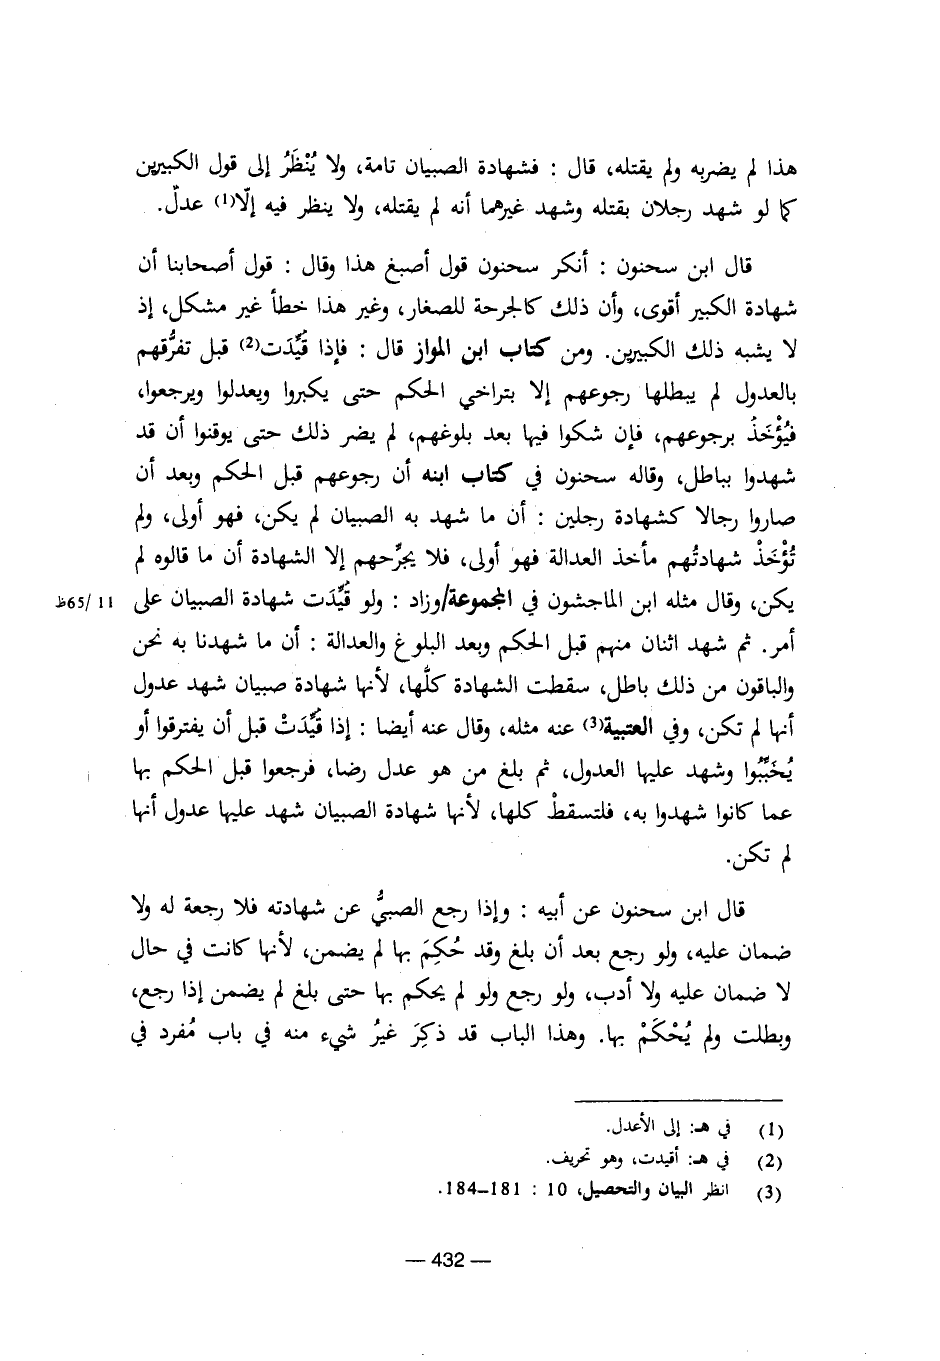 هذا لم يضربه ولم يقتله، قال : فشهادة الصبيان تامة، ولا يُنْظَرُ إلى قول الكبيرين
كما لو شهد رجلان بقتله وشهد غيرهما أنه لم يقتله، ولا ينظر فيه إلّا(1) عدلٌ.
قال ابن سحنون : أنكر سحنون قول أصبغ هذا وقال : قول أصحابنا أن
شهادة الكبير أقوى، وأن ذلك كالجرحة للصغار، وغير هذا خطأ غير مشكل، إذ
لا يشبه ذلك الكبيرين. ومن كتاب ابن المواز قال : فإذا قُيِّدَت(2) قبل تفرُّقهم
بالعدول لم يبطلها رجوعهم إلا بتراخي الحكم حتى يكبروا ويعدلوا ويرجعوا،
فيُؤْخَذُ برجوعهم، فإن شكوا فيها بعد بلوغهم، لم يضر ذلك حتى يوقنوا أن قد
شهدوا بباطل، وقاله سحنون في كتاب ابنه أن رجوعهم قبل الحكم وبعد أن
صاروا رجالا كشهادة رجلين : أن ما شهد به الصبيان لم يكن، فهو أولى، ولم
تُؤْخَذْ شهادتُهم مأخذ العدالة فهو أولى، فلا يجرِّحهم إلا الشهادة أن ما قالوه لم
يكن، وقال مثله ابن الماجشون في المجموعة/وزاد : ولو قُيِّدَت شهادة الصبيان على
11 /65ظ
أمر. ثم شهد اثنان منهم قبل الحكم وبعد البلوغ والعدالة : أن ما شهدنا به نحن
والباقون من ذلك باطل، سقطت الشهادة كلُّها، لأنها شهادة صبيان شهد عدول
أنها لم تكن، وفي العتبية(3) عنه مثله، وقال عنه أيضا : إذا قُيِّدَتْ قبل أن يفترقوا أو
يُخَبَّبُوا وشهد عليها العدول، ثم بلغ من هو عدل رضا، فرجعوا قبل الحكم بها
عما كانوا شهدوا به، فلتسقطْ كلها، لأنها شهادة الصبيان شهد عليها عدول أنها
لم تكن.
قال ابن سحنون عن أبيه : وإذا رجع الصبيُّ عن شهادته فلا رجعة له ولا
ضمان عليه، ولو رجع بعد أن بلغ وقد حُكِمَ بها لم يضمن، لأنها كانت في حال
لا ضمان عليه ولا أدب، ولو رجع ولو لم يحكم بها حتى بلغ لم يضمن إذا رجع،
وبطلت ولم يُحْكَمْ بها. وهذا الباب قد ذكِرَ غيرُ شيء منه في باب مُفرد في
(1) في هـ: إلى الأعدل.
(2) في هـ: أقيدت، وهو تحريف.
(3) انظر البيان والتحصيل، 10 : 181–184.
— 432 —